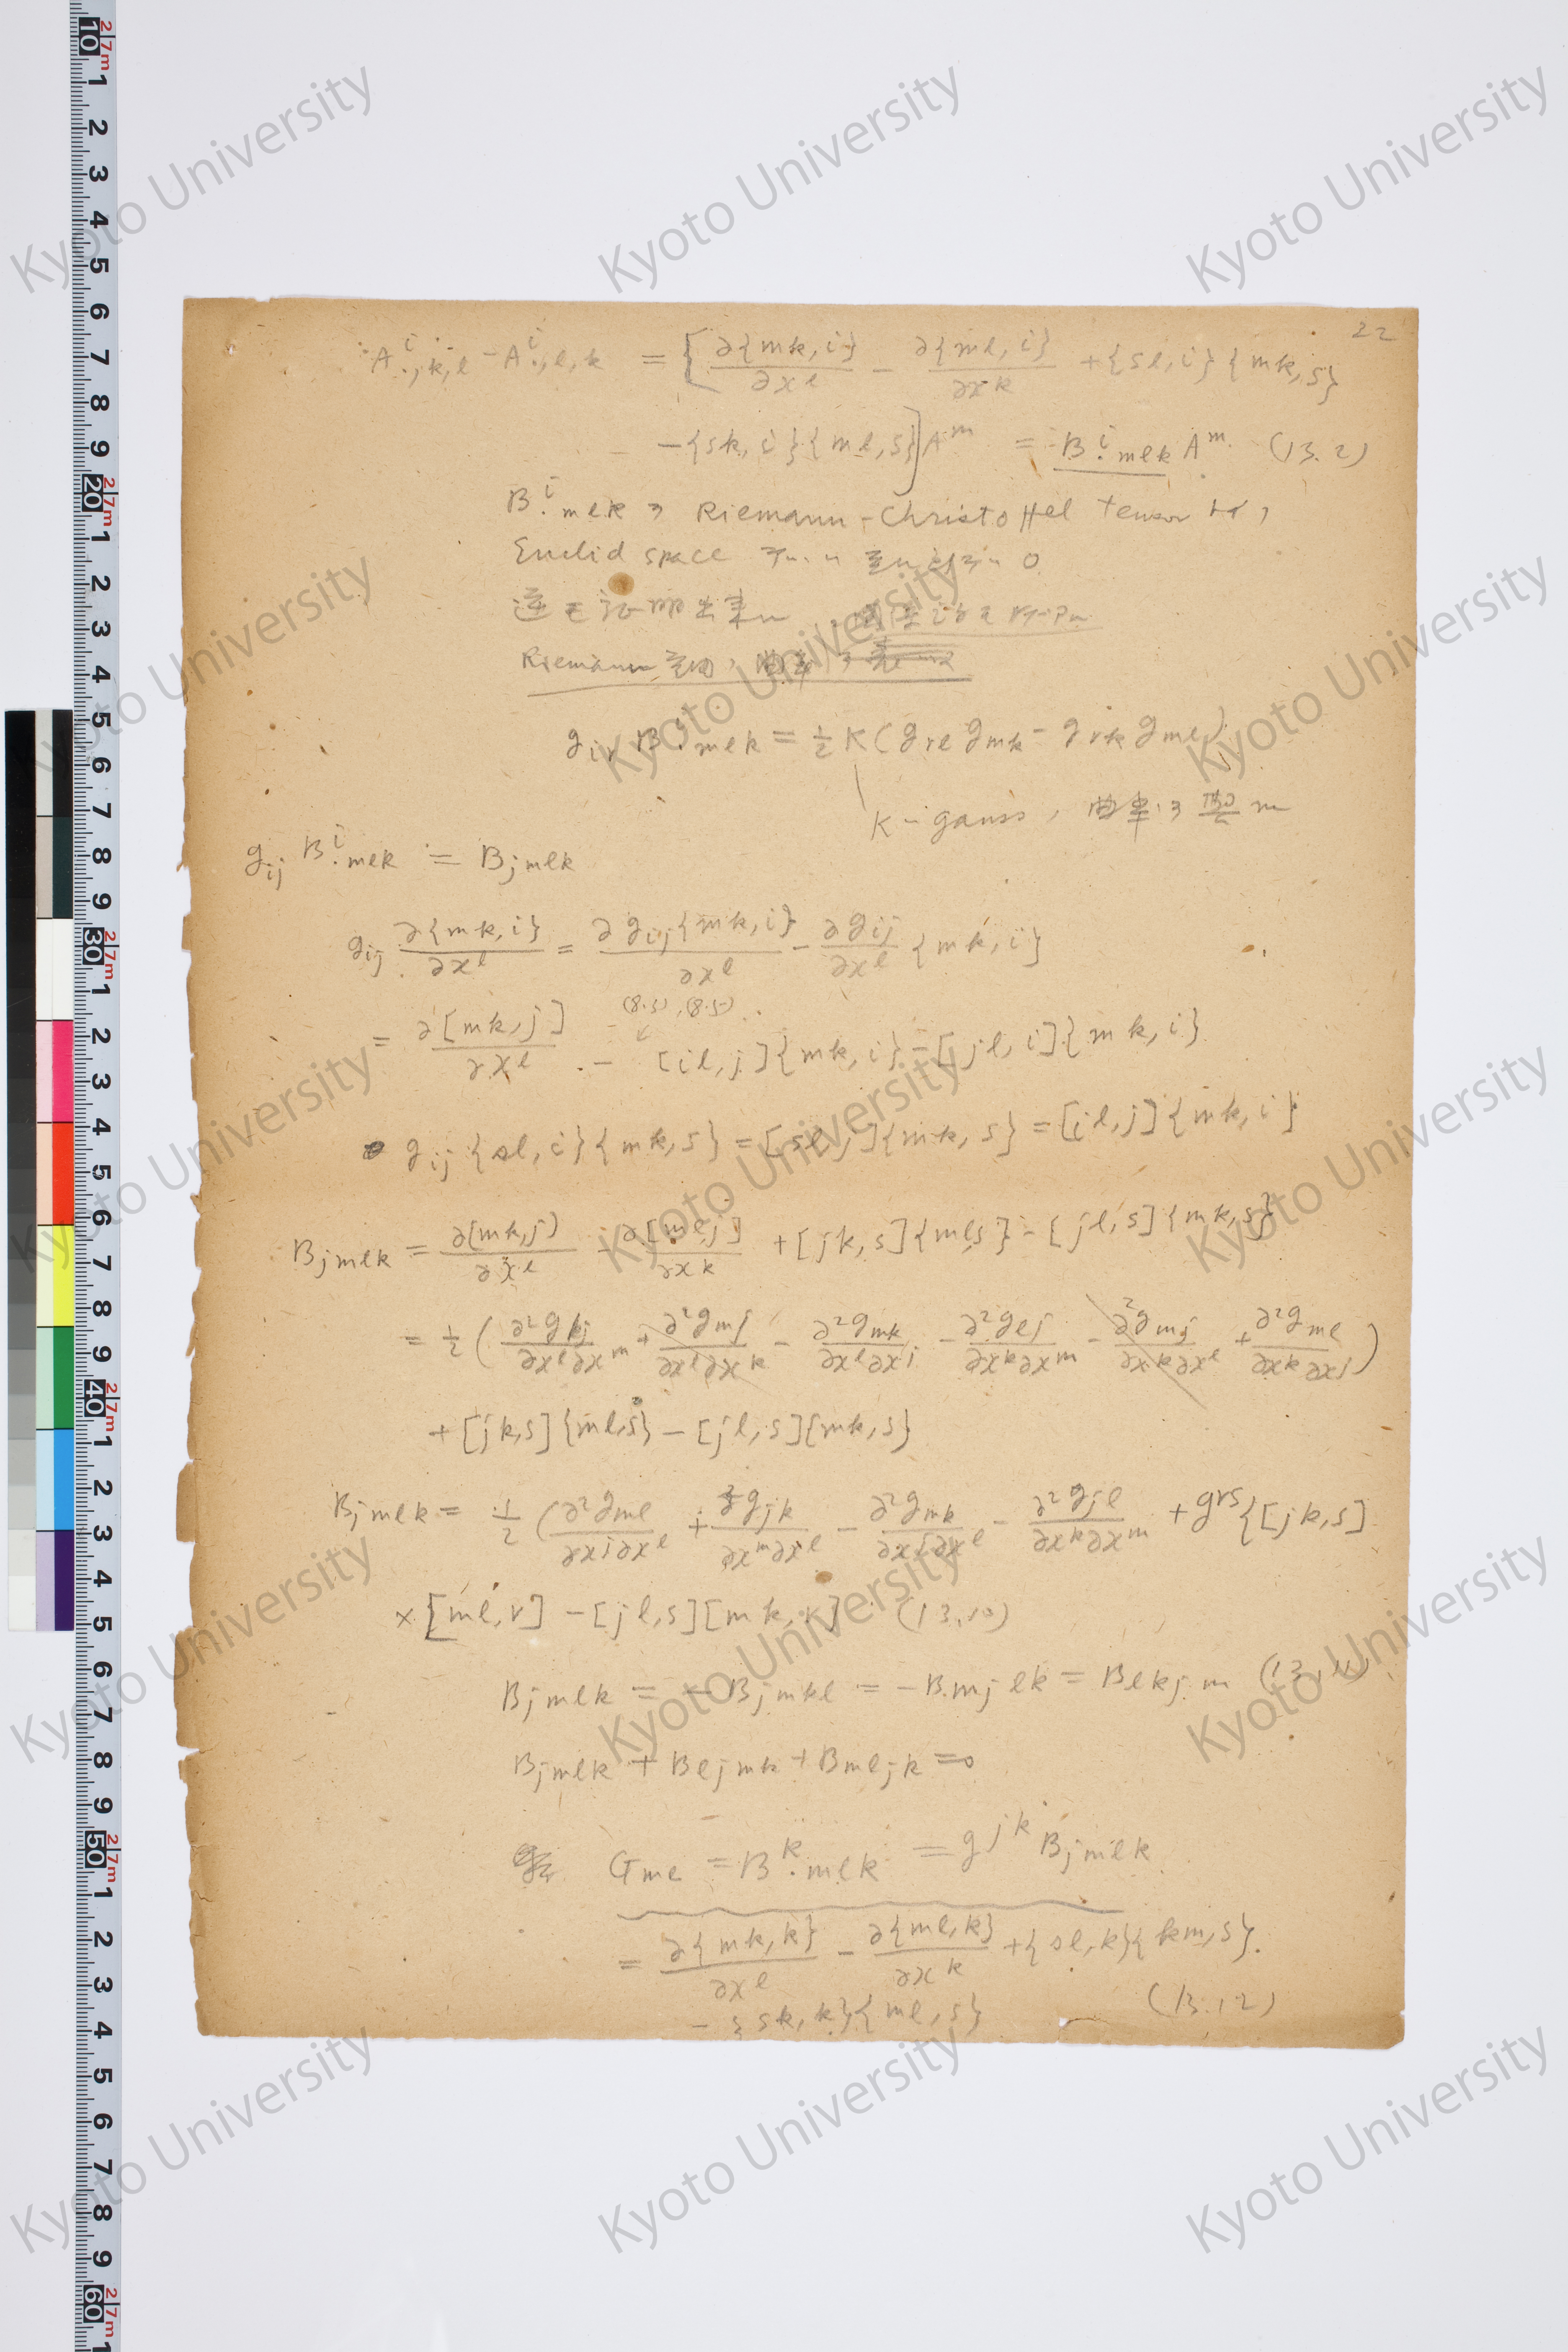 22
A^i_{.,k,l} - A^i_{.,l,k} = [ ∂{mk,i}/∂x^l - ∂{ml,i}/∂x^k + {sl,i}{mk,s}
- {sk,i}{ml,s} ] A^m = B^i_{.mlk} A^m (13.2)
B^i_{.mlk} Riemann-Christoffel tensor
Euclid space 0
逆 証明出来
Riemann 空間 曲率
g_{ir} B^i_{.mlk} = 1/2 K (g_{rl} g_{mk} - g_{rk} g_{ml})
K gauss 曲率
g_{ij} B^i_{.mlk} = B_{jmlk}
g_{ij} ∂{mk,i}/∂x^l = ∂g_{ij}{mk,i}/∂x^l - ∂g_{ij}/∂x^l {mk,i}
(8.5)
= ∂[mk,j]/∂x^l - [il,j]{mk,i} - [jl,i]{mk,i}
g_{ij}{sl,i}{mk,s} = [sl,j]{mk,s} = [il,j]{mk,i}
B_{jmlk} = ∂[mk,j]/∂x^l - ∂[ml,j]/∂x^k + [jk,s]{ml,s} - [jl,s]{mk,s}
= 1/2 ( ∂²g_{kj}/∂x^l∂x^m + ∂²g_{mj}/∂x^l∂x^k - ∂²g_{mk}/∂x^l∂x^j - ∂²g_{lj}/∂x^k∂x^m - ∂²g_{mj}/∂x^k∂x^l + ∂²g_{ml}/∂x^k∂x^j )
+ [jk,s]{ml,s} - [jl,s]{mk,s}
B_{jmlk} = 1/2 ( ∂²g_{ml}/∂x^j∂x^l + ∂²g_{jk}/∂x^m∂x^l - ∂²g_{mk}/∂x^j∂x^l - ∂²g_{jl}/∂x^k∂x^m + g^{rs}{[jk,s]
× [ml,r] - [jl,s][mk,r] (13.10)
B_{jmlk} = - B_{jmkl} = - B_{mjlk} = B_{lkjm} (13.11)
B_{jmlk} + B_{ljmk} + B_{mljk} = 0
G_{ml} = B^k_{.mlk} = g^{jk} B_{jmlk}
= ∂{mk,k}/∂x^l - ∂{ml,k}/∂x^k + {sl,k}{km,s}
- {sk,k}{ml,s} (13.12)
Kyoto University